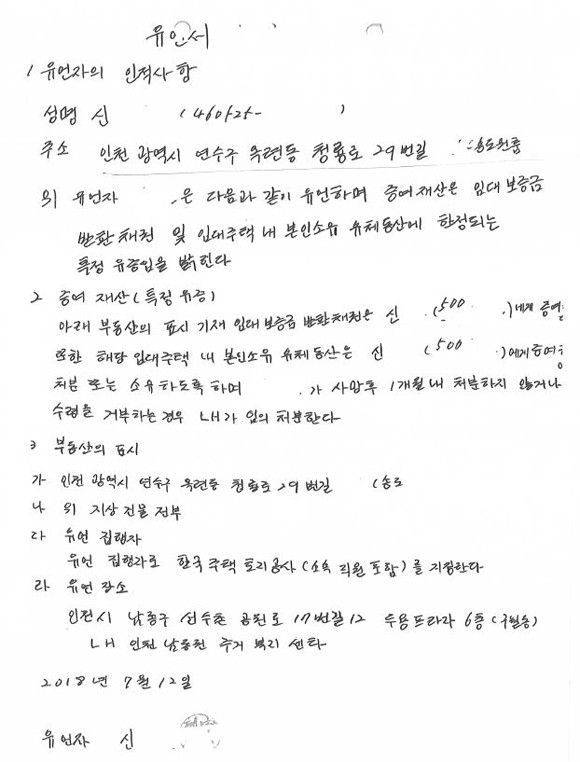 유언서
1 유언자의 인적사항
성명 신 (460125- )
주소 인천 광역시 연수구 옥련동 청룡로 29번길
위 유언자 은 다음과 같이 유언하며 증여재산은 임대 보증금
반환채권 및 임대주택 내 본인소유 유체동산에 한정되는
특정 유증임을 밝힌다
2 증여 재산(특정 유증)
아래 부동산의 표시 기재 임대보증금 반환채권은 신 (500 )에게 증여
또한 해당 임대주택 내 본인소유 유체동산은 신 (500 )에게증여
처분 또는 소유하도록하며 가 사망후 1개월내 처분하지 않거나
수령을 거부하는경우 LH가 임의 처분한다
3 부동산의 표시
가 인천 광역시 연수구 옥련동 청룡로 29번길 (송도
나 위 지상 건물 전부
다 유언 집행자
유언 집행자로 한국 주택 토지공사(소속 직원 포함)를 지정한다
라 유언 장소
인천시 남동구 선수촌 공원로 17번길12 6층(구월동)
LH 인천 남동권 주거 복지 센타
2018년 7월 12일
유언자 신